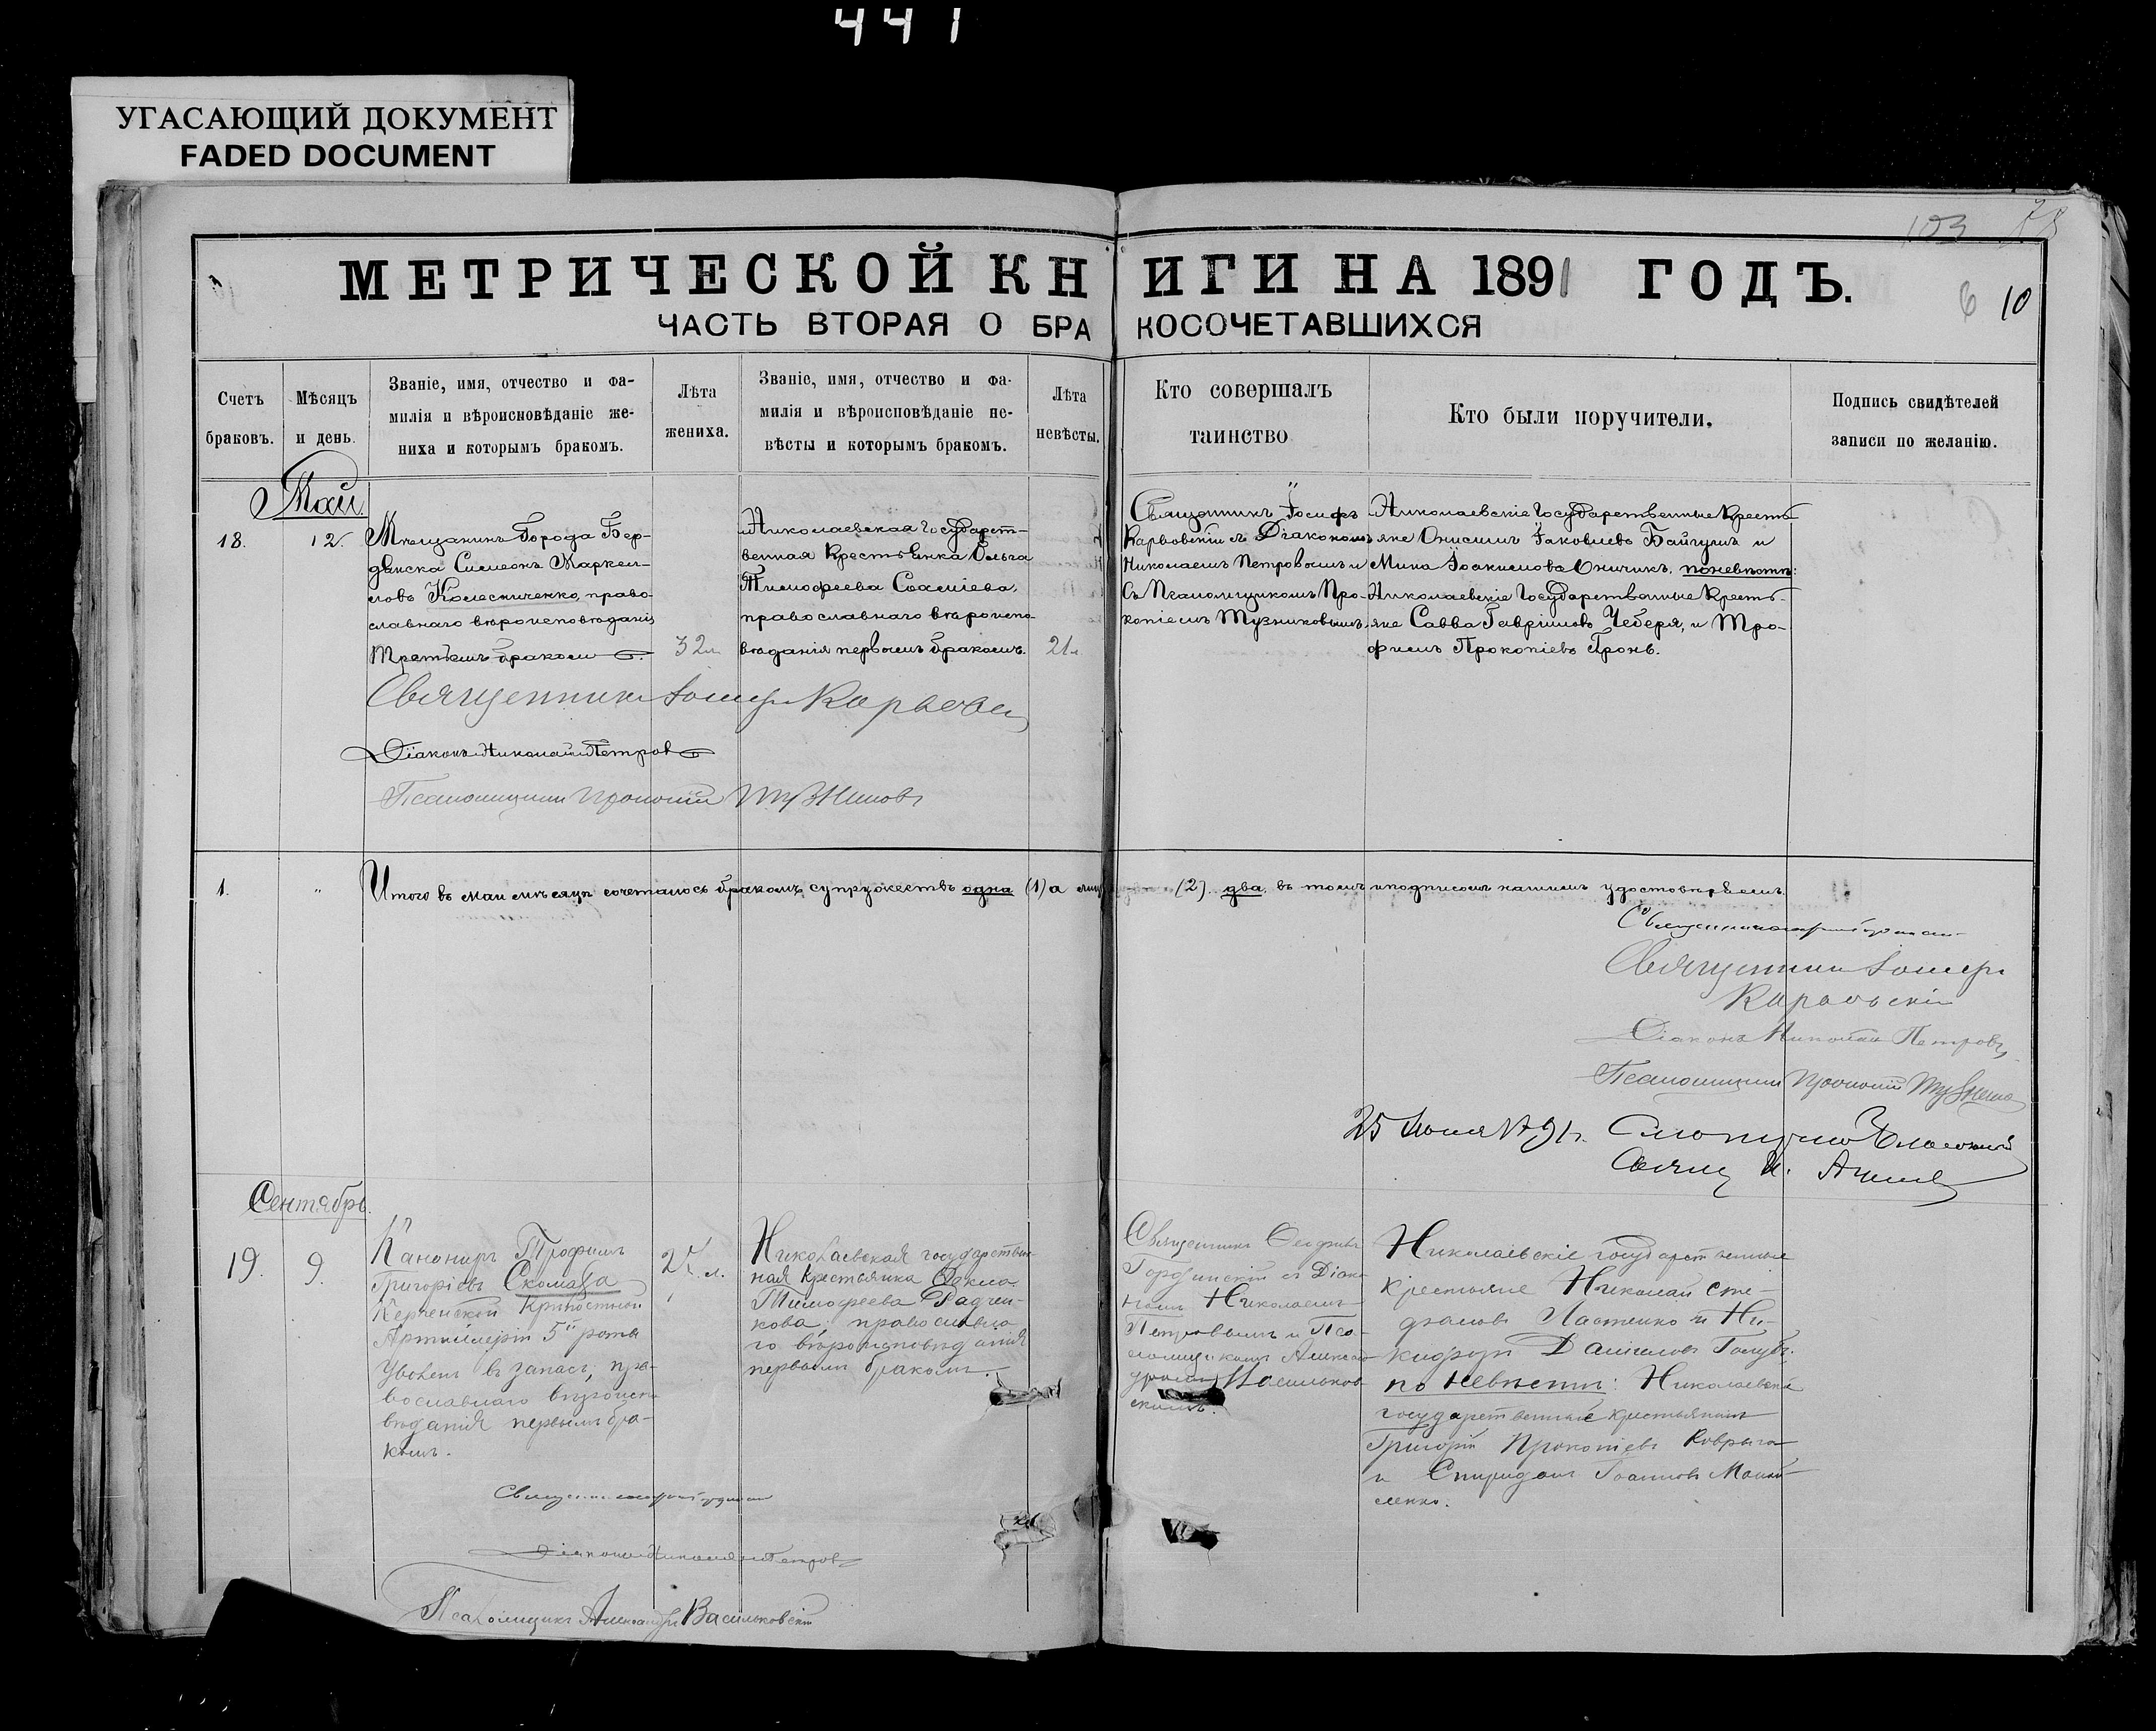 441
УГАСАЮЩИЙ ДОКУМЕНТ
FADED DOCUMENT
103
МЕТРИЧЕСКОЙ КНИГИ НА 1891 ГОДЪ.
6 10
ЧАСТЬ ВТОРАЯ О БРАКОСОЧЕТАВШИХСЯ
Счетъ
браковъ.
Мѣсяцъ
и день.
Званіе, имя, отчество и фа-
милія и вѣроисповѣданіе же-
ниха и которымъ бракомъ.
Лѣта
жениха.
Званіе, имя, отчество и фа-
милія и вѣроисповѣданіе не-
вѣсты и которымъ бракомъ.
Лѣта
невѣсты.
Кто совершалъ
таинство
Кто были поручители.
Подпись свидѣтелей
записи по желанію.
Май.
18.
12.
Мѣщанинъ Города Бер-
дянска Симеонъ Маркел-
ловъ Колесниченко, право-
славнаго вѣроисповѣданія
третьимъ бракомъ
32
Николаевская Государст-
венная Крестьянка Ольга
Тимофеева
православнаго вѣроиспо-
вѣданія первымъ бракомъ.
21
Священникъ Іосифъ
Карьовскій съ Діакономъ
Николаемъ Петровымъ и
съ Псаломщикомъ Про-
копіемъ Тузниковымъ.
Николаевскіе Государственные Кресть-
яне Онисимъ Іаковлевъ Байгушъ и
Мина Іоакимовъ Оничикъ. по невѣстѣ:
Николаевскіе Государственные Кресть-
яне Савва Гавріиловъ Чеберя, и Тро-
фимъ Прокопіевъ Пронь.
Священникъ Іосифъ
Діаконъ Николай Петровъ
Псаломщикъ Прокопій Тузниковъ
1.
"
Итого въ маи мѣсяцѣ сочеталось бракомъ супружествъ одна (1) а лицъ (2). два. въ томъ и подписомъ нашимъ удостовѣряемъ.
Священникъ Іосифъ
Карьовскій
Діаконъ Николай Петровъ
Псаломщикъ Прокопій
25 Іюля 1891 г.
Сентябрь.
19.
9.
Канониръ Трофимъ
Григоріевъ Скомаза
Керченской Крѣпостной
Артиллеріи 5й роты
Уволен въ запасъ, пра-
вославнаго вѣроиспо-
вѣданія первымъ бра-
комъ.
Николаевская государствен-
ная крестьянка Фекла
Тимофеева Радчен-
кова, православна-
го вѣроисповѣданія
первымъ бракомъ.
Священникъ
съ Діако-
номъ Николаемъ
Петровымъ и Пса-
ломщикомъ Алексан-
дромъ Васильков-
скимъ.
Николаевскіе государственные
крестьяне Николай Сте-
фановъ Ластенко и Ни-
кифоръ Даніиловъ Голубъ.
по невѣстѣ: Николаевскіе
государственные крестьянинъ
Григорій Прокопіевъ Коврыга
и Спиридонъ Іоанновъ
Діаконъ Николай Петровъ
Псаломщикъ Александръ Васильковскій